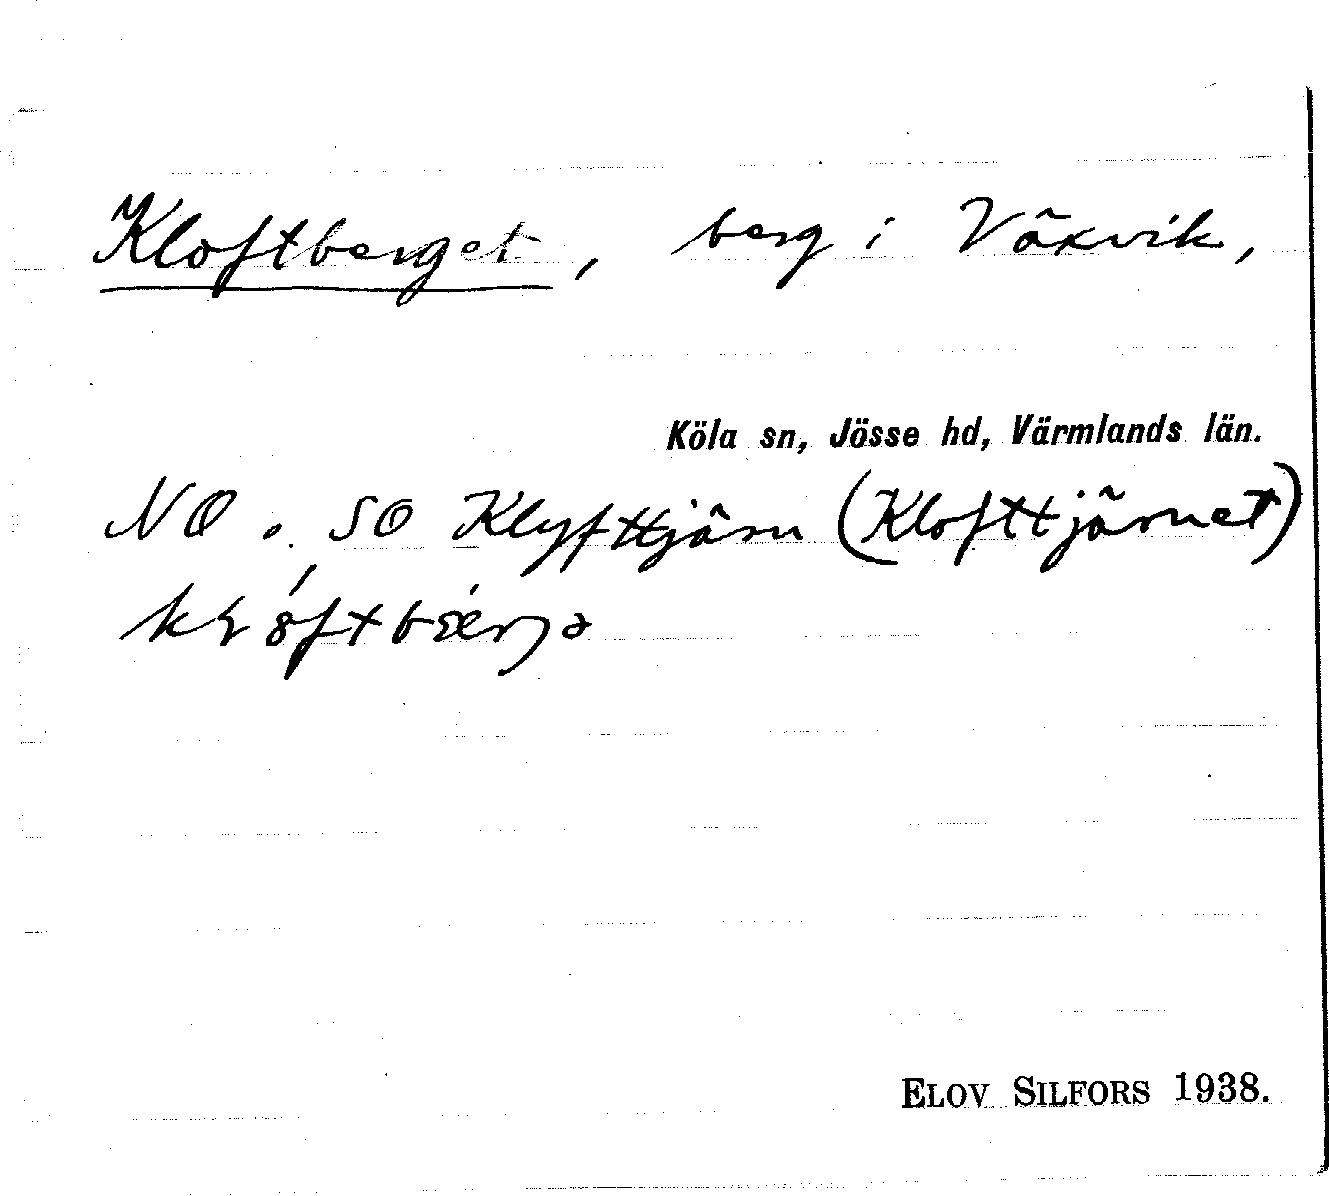 Kloftberget, berg i Växvik,
Köla sn, Jösse hd, Värmlands län.
NO o. SO Klyfttjärn (Klofttjärnet)
ELOV SILFORS 1938.